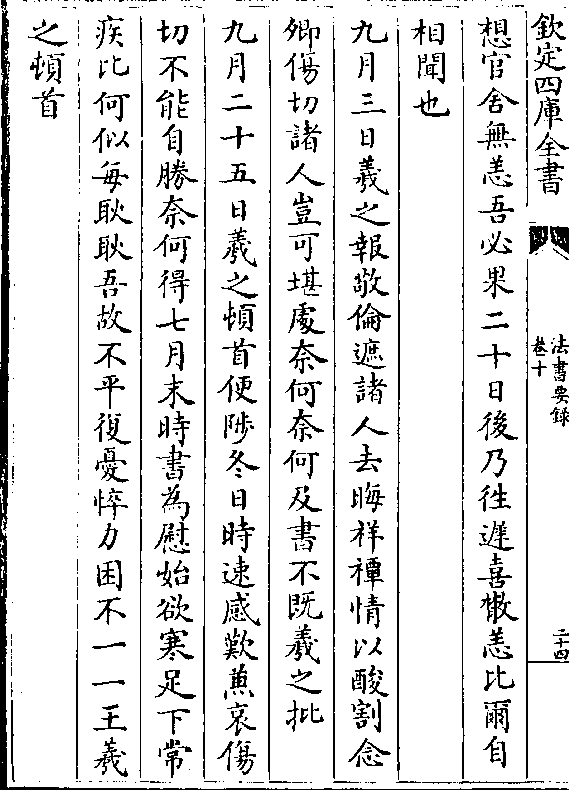 欽定四庫全書
法書要錄
卷十
二十四
想官舍無恙吾必果二十日後乃徃遲喜散恙比爾自
相聞也
九月三日羲之報敬倫遮諸人去晦祥禫情以酸割念
卿傷切諸人豈可堪處奈何奈何及書不既羲之批
九月二十五日羲之頓首便陟冬日時速感歎兼哀傷
切不能自勝奈何得七月末時書為慰始欲寒足下常
疾比何似每耿耿吾故不平復憂悴力困不一一王羲
之頓首